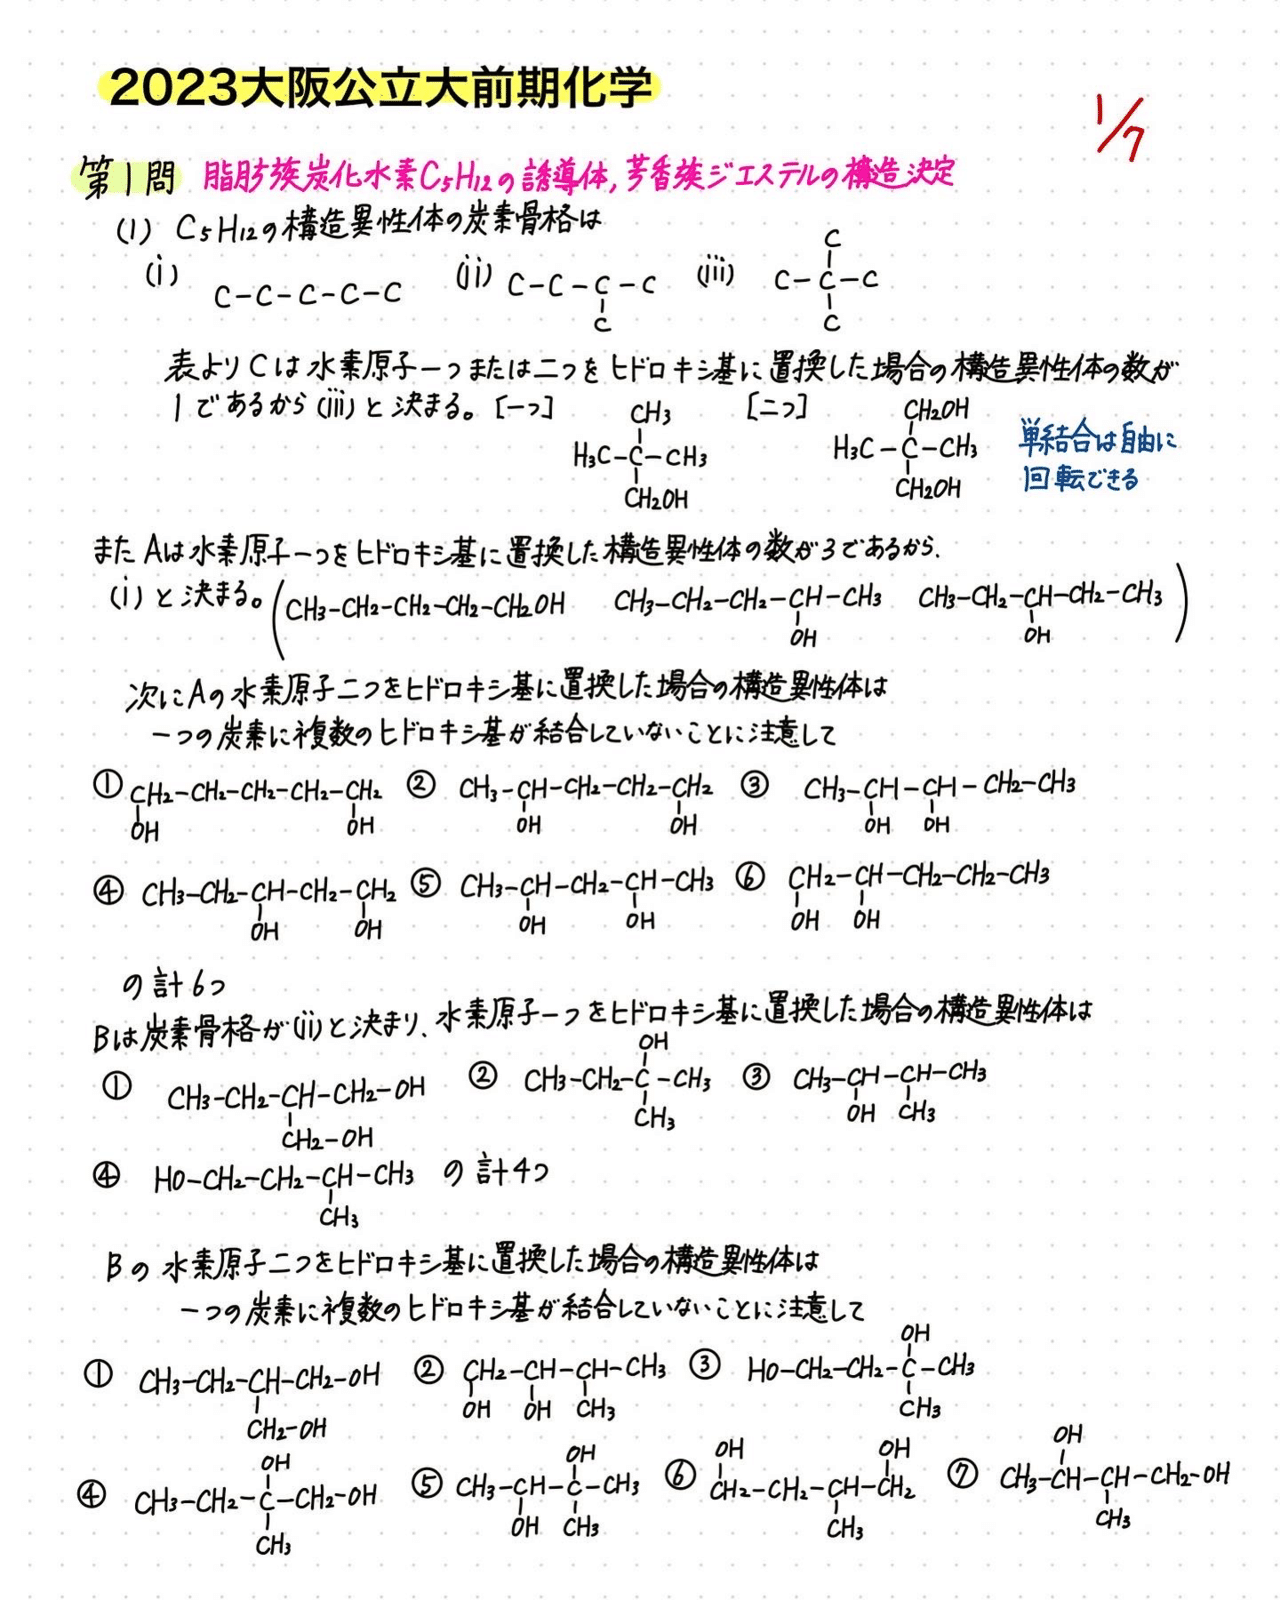 2023大阪公立大前期化学
1/7
第1問 脂肪族炭化水素C5H12の誘導体,芳香族ジエステルの構造決定
(1) C5H12の構造異性体の炭素骨格は
(i) C-C-C-C-C (ii) C-C-C-C (iii) C-C-C
C C C
表よりCは水素原子一つまたは二つをヒドロキシ基に置換した場合の構造異性体の数が
1であるから(iii)と決まる。[一つ] [二つ]
CH3 CH2OH
H3C-C-CH3 H3C-C-CH3
CH2OH CH2OH
単結合は自由に
回転できる
またAは水素原子一つをヒドロキシ基に置換した構造異性体の数が3であるから、
(i)と決まる。(CH3-CH2-CH2-CH2-CH2OH CH3-CH2-CH2-CH-CH3 CH3-CH2-CH-CH2-CH3)
OH OH
次にAの水素原子二つをヒドロキシ基に置換した場合の構造異性体は
一つの炭素に複数のヒドロキシ基が結合していないことに注意して
① CH2-CH2-CH2-CH2-CH2 ② CH3-CH-CH2-CH2-CH2 ③ CH3-CH-CH-CH2-CH3
OH OH OH OH OH OH
④ CH3-CH2-CH-CH2-CH2 ⑤ CH3-CH-CH2-CH-CH3 ⑥ CH2-CH-CH2-CH2-CH3
OH OH OH OH OH OH
の計6つ
Bは炭素骨格が(ii)と決まり、水素原子一つをヒドロキシ基に置換した場合の構造異性体は
OH
① CH3-CH2-CH-CH2-OH ② CH3-CH2-C-CH3 ③ CH3-CH-CH-CH3
CH2-OH CH3 OH CH3
④ HO-CH2-CH2-CH-CH3 の計4つ
CH3
Bの水素原子二つをヒドロキシ基に置換した場合の構造異性体は
一つの炭素に複数のヒドロキシ基が結合していないことに注意して
OH
① CH3-CH2-CH-CH2-OH ② CH2-CH-CH-CH3 ③ HO-CH2-CH2-C-CH3
CH2-OH OH OH CH3 CH3
OH OH OH OH OH
④ CH3-CH2-C-CH2-OH ⑤ CH3-CH-C-CH3 ⑥ CH2-CH2-CH-CH2 ⑦ CH3-CH-CH-CH2-OH
CH3 OH CH3 CH3 CH3